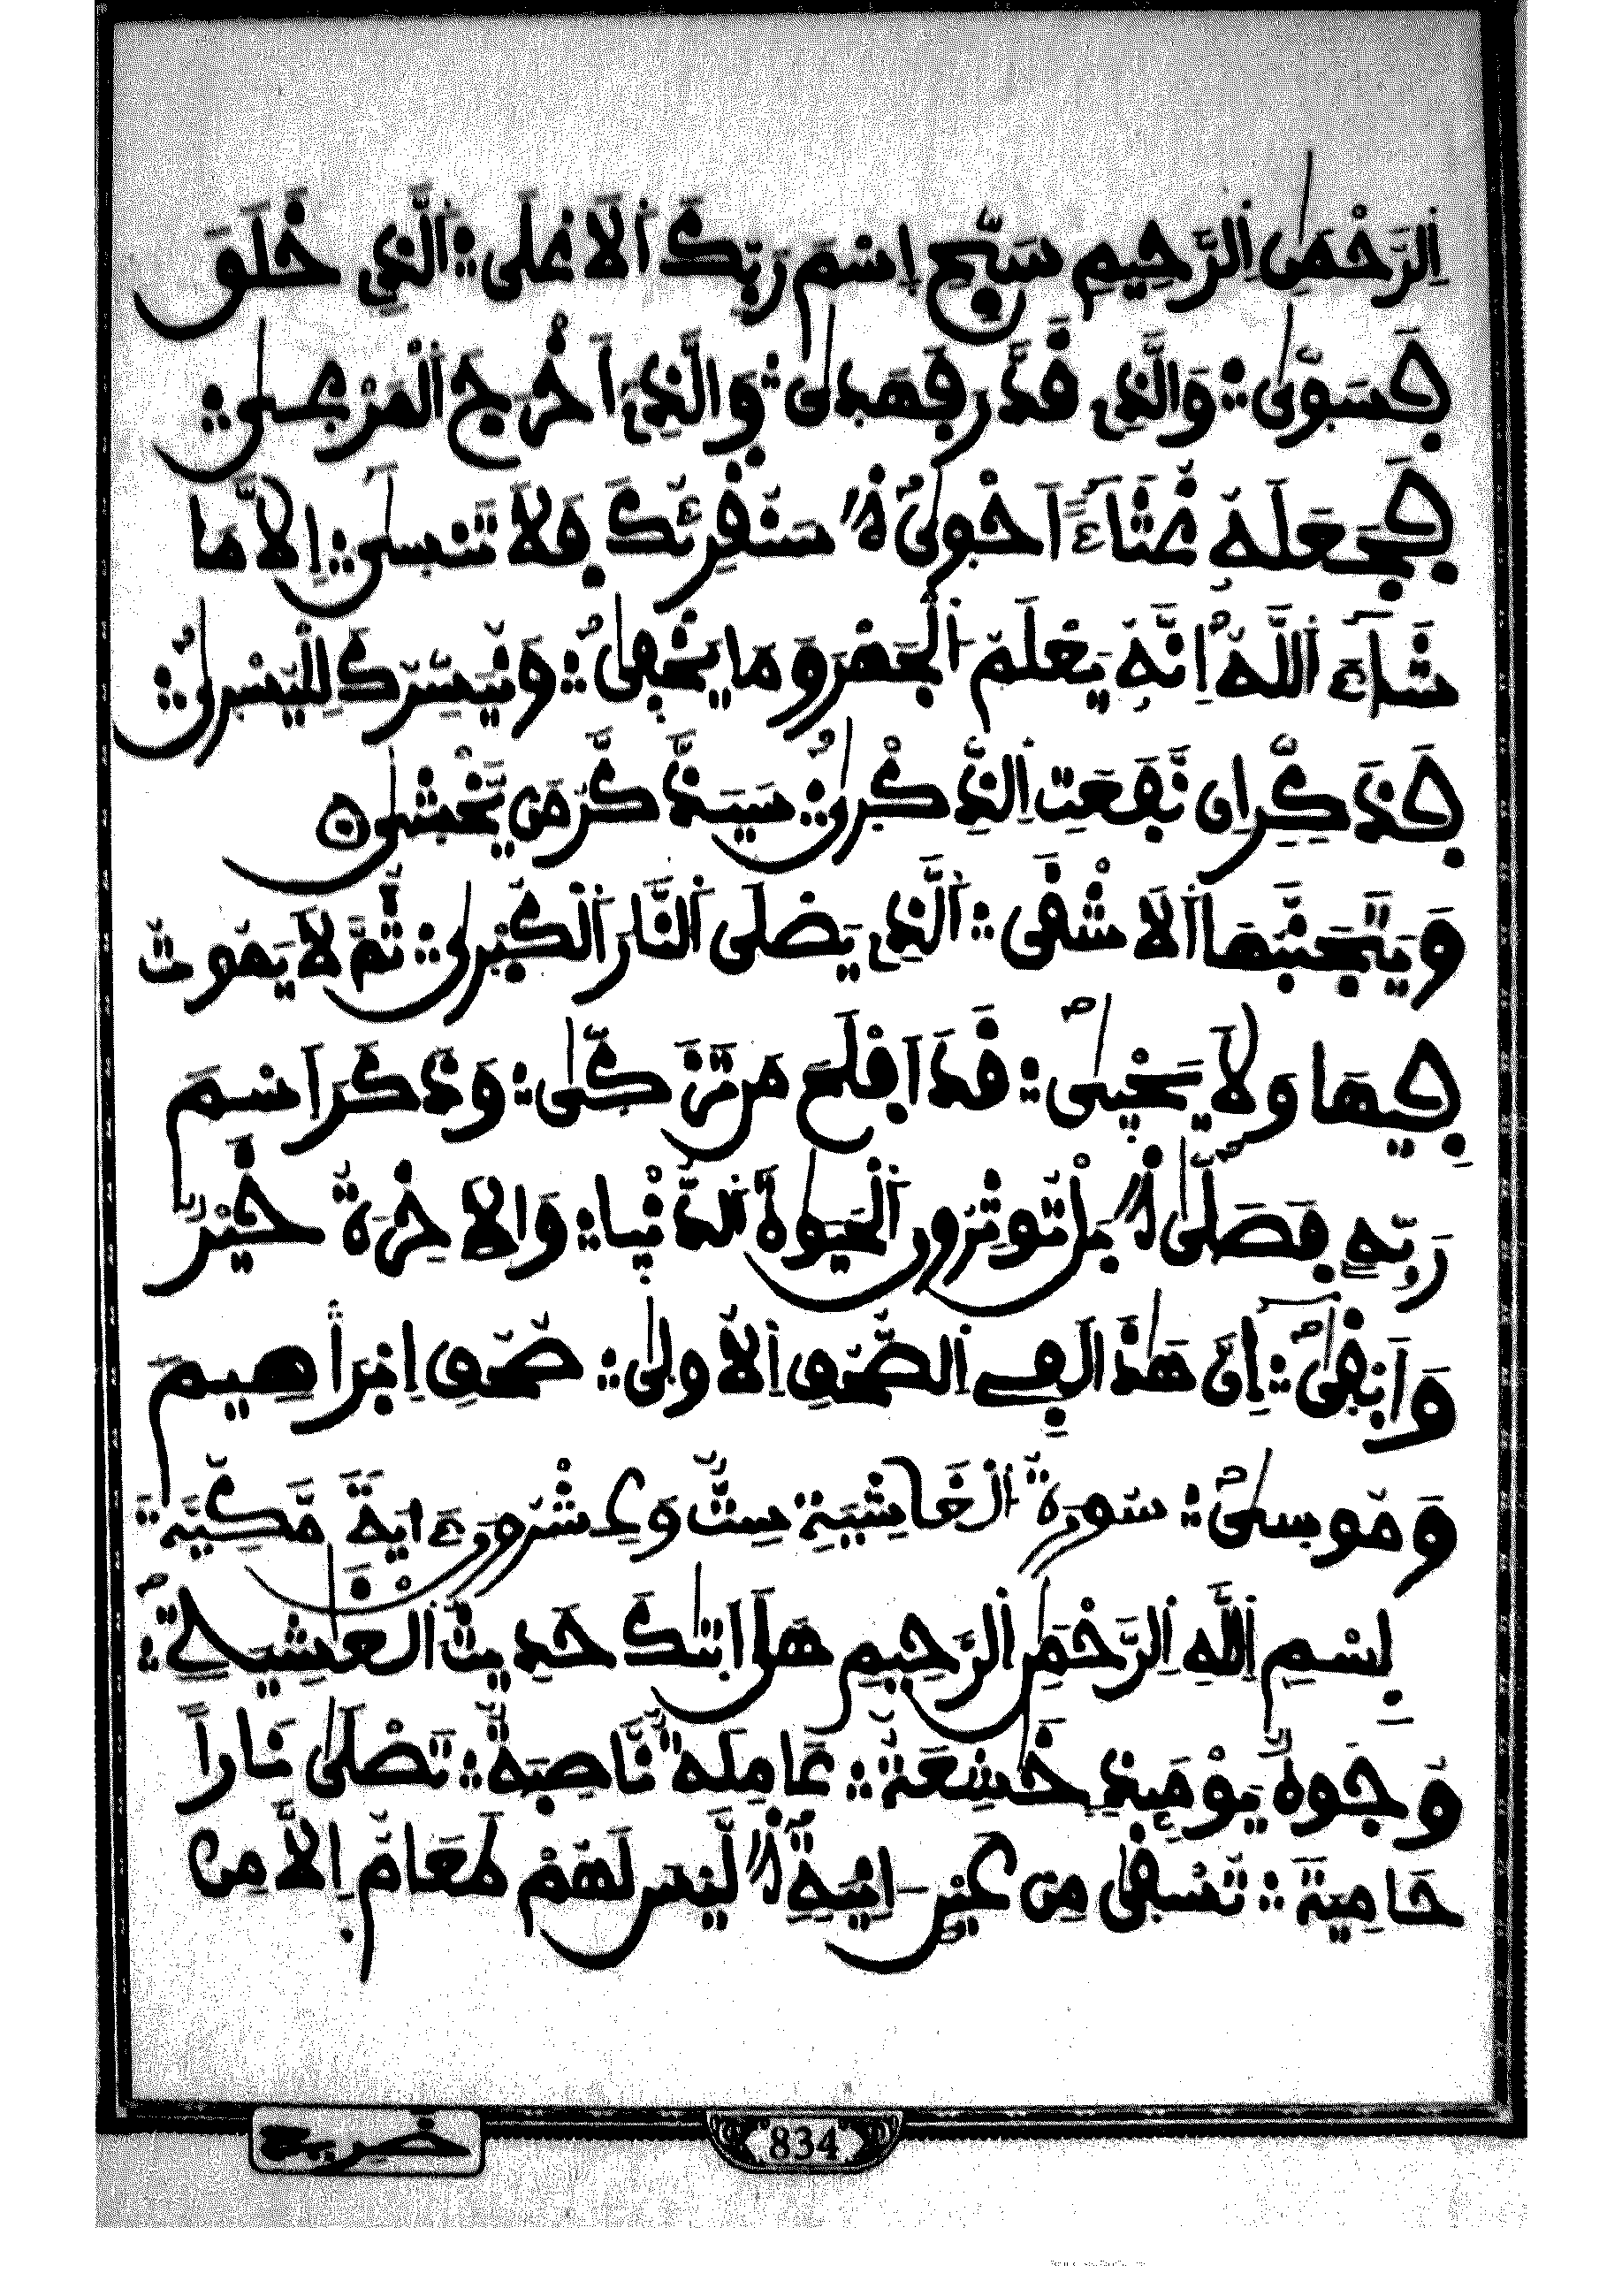 اِ۬لرَّحْمَٰنِ اِ۬لرَّحِيمِ سَبِّحِ اِسْمَ رَبِّكَ اَ۬لَاعْلَى اَ۬لذِي خَلَقَ
فَسَوّٰى وَالذِي قَدَّرَ فَهَدٰى وَالذِي أَخْرَجَ اَ۬لْمَرْعٰى
فَجَعَلَهُۥ غُثَآءً اَحْوٰى سَنُقْرِئُكَ فَلَا تَنسٰى إِلَّا مَا
شَآءَ اَ۬للَّهُ إِنَّهُۥ يَعْلَمُ اُ۬لْجَهْرَ وَمَا يَخْفٰى وَنُيَسِّرُكَ لِلْيُسْرٰى
فَذَكِّرِ اِن نَّفَعَتِ اِ۬لذِّكْرٰى سَيَذَّكَّرُ مَن يَّخْشٰى
وَيَتَجَنَّبُهَا اَ۬لَاشْقَى اَ۬لذِي يَصْلَى اَ۬لنَّارَ اَ۬لْكُبْرٰى ثُمَّ لَا يَمُوتُ
فِيهَا وَلَا يَحْيٰى قَدَ اَفْلَحَ مَن تَزَكّٰى وَذَكَرَ اَسْمَ
رَبِّهِۦ فَصَلّٰى بَلْ تُوثِرُونَ اَ۬لْحَيَوٰةَ اَ۬لدُّنْيا وَالَاخِرَةُ خَيْرٌ
وَأَبْقٰى إِنَّ هَٰذَا لَفِي اِ۬لصُّحُفِ اِ۬لُاولٰى صُحُفِ إِبْرَٰهِيمَ
وَمُوسٰى سُورَةُ اُ۬لْغَاشِيَةِ سِتٌّ وَعِشْرُونَ ءَايَةً مَّكِّيَّةٌ
بِسْمِ اِ۬للَّهِ اِ۬لرَّحْمَٰنِ اِ۬لرَّحِيمِ هَلَ اَتٰىكَ حَدِيثُ اُ۬لْغَٰشِيَةِ
وُجُوهٌ يَوْمَئِذٍ خَٰشِعَةٌ عَامِلَةٌ نَّاصِبَةٌ تَصْلٰى نَاراً
حَامِيَةً تُسْقٰى مِنْ عَيْنٍ اٰنِيَةٍ لَّيْسَ لَهُمْ طَعَامٌ إِلَّا مِن
ضَرِيعٍ
834